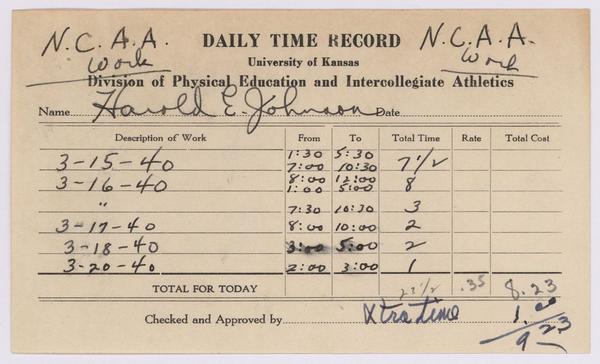 N.C.A.A. DAILY TIME RECORD N.C.A.A.
Work University of Kansas Work
Division of Physical Education and Intercollegiate Athletics
Name Harold E. Johnson Date
Description of Work From To Total Time Rate Total Cost
3-15-40 1:30 5:30
7:00 10:30 7 1/2
3-16-40 8:00 12:00 8
1:00 5:00
" 7:30 10:30 3
3-17-40 8:00 10:00 2
3-18-40 3:00 5:00 2
3-20-40 2:00 3:00 1
TOTAL FOR TODAY 23 1/2 .35 8.23
Checked and Approved by Xtra time 1.00
9 23